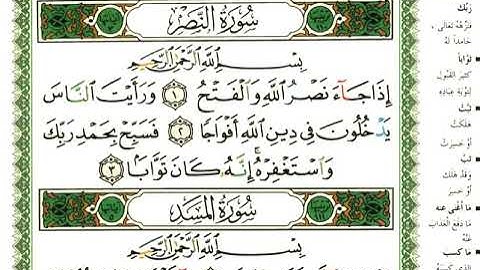 سُورَةُ النَّصْرِ
بِسْمِ اللَّهِ الرَّحْمَٰنِ الرَّحِيمِ
إِذَا جَآءَ نَصْرُ اللَّهِ وَالْفَتْحُ ١ وَرَأَيْتَ النَّاسَ
يَدْخُلُونَ فِي دِينِ اللَّهِ أَفْوَاجًا ٢ فَسَبِّحْ بِحَمْدِ رَبِّكَ
وَاسْتَغْفِرْهُ إِنَّهُ كَانَ تَوَّابًا ٣
سُورَةُ المَسَد
بِسْمِ اللَّهِ الرَّحْمَٰنِ الرَّحِيمِ
رَبِّكَ
فنزّهه تعالى،
حامداً له
توّاباً
كثير القبول
لتوبة عباده
تبّت
هلكت
أو خسرت
تبّ
وقد هلك
أو خسر
ما أغنى عنه
ما دفع العذاب
عنه
ما كسب
الذي كسبه